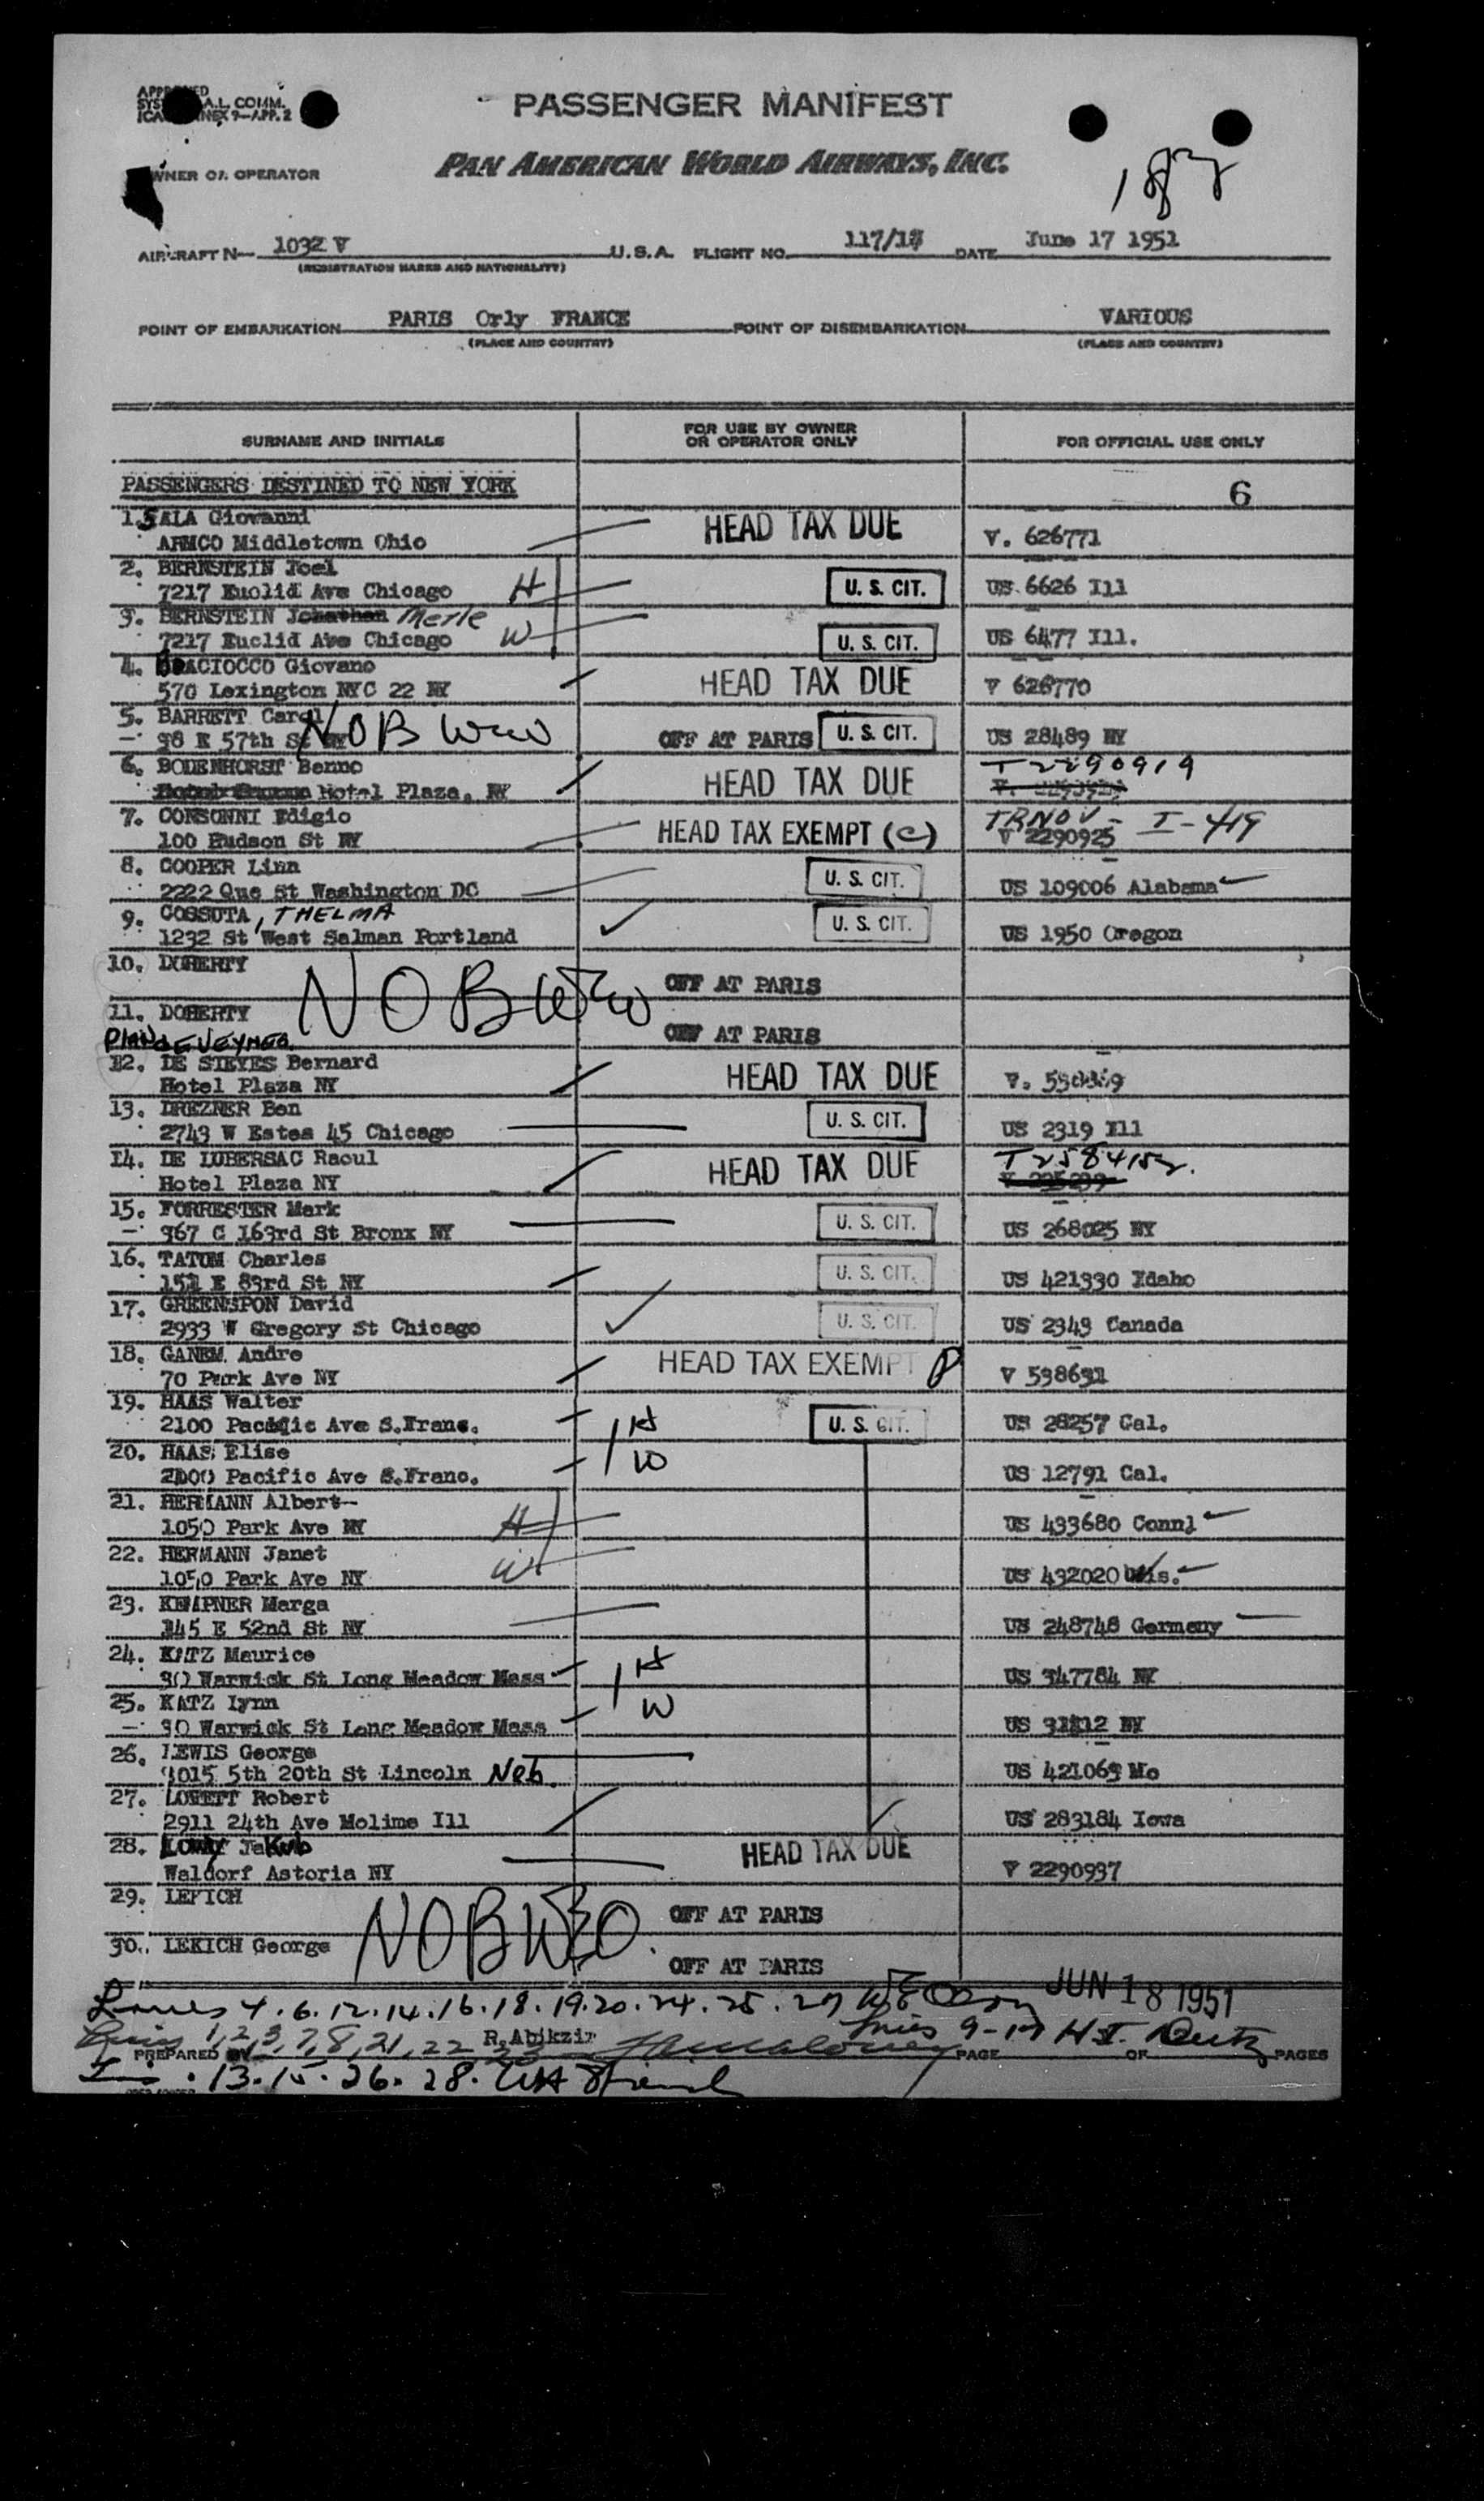 PASSENGER MANIFEST
A.L. COMM.
PAN AMERICAN WORLD AIRWAYS, INC.
OWNER OR OPERATOR
AIRCRAFT N— 1032 V U.S.A. FLIGHT NO. 117/17 DATE June 17 1951
(REGISTRATION MARKS AND NATIONALITY)
POINT OF EMBARKATION PARIS Orly FRANCE POINT OF DISEMBARKATION VARIOUS
(PLACE AND COUNTRY) (PLACE AND COUNTRY)
SURNAME AND INITIALS FOR USE BY OWNER OR OPERATOR ONLY FOR OFFICIAL USE ONLY
PASSENGERS DESTINED TO NEW YORK 6
1. SALA Giovanni HEAD TAX DUE
ARMCO Middletown Ohio V. 626771
2. BERNSTEIN Joel
7217 Euclid Ave Chicago H U. S. CIT. US 6626 Ill
3. BERNSTEIN Jonathan Merle
7217 Euclid Ave Chicago W U. S. CIT. US 6477 Ill.
4. BRACIOCCO Giovano HEAD TAX DUE
570 Lexington NYC 22 NY V 626770
5. BARRETT Carol NOB
38 E 57th St NY OFF AT PARIS U. S. CIT. US 28489 NY
6. BODENHORST Benno HEAD TAX DUE T2290919
Hotel Plaza, NY
7. CONSONNI Edigio HEAD TAX EXEMPT (C) TRNOV - I-419
100 Hudson St NY V 2290925
8. COOPER Linn U. S. CIT.
2222 Que St Washington DC US 109006 Alabama
9. COSSUTA, THELMA U. S. CIT.
1232 St West Salman Portland US 1950 Oregon
10. DOHERTY NOB OFF AT PARIS
11. DOHERTY OFF AT PARIS
12. DE SIEYES Bernard HEAD TAX DUE
Hotel Plaza NY
13. DREZNER Ben U. S. CIT.
2743 W Estes 45 Chicago US 2319 Ill
14. DE LUBERSAC Raoul HEAD TAX DUE T2584152
Hotel Plaza NY
15. FORRESTER Mark U. S. CIT.
367 C 163rd St Bronx NY US 268025 NY
16. TATUM Charles U. S. CIT.
151 E 83rd St NY US 421330 Idaho
17. GREENSPON David U. S. CIT.
2933 W Gregory St Chicago US 2343 Canada
18. GANEM Andre HEAD TAX EXEMPT P
70 Park Ave NY V 598631
19. HAAS Walter
2100 Pacific Ave S.Franc. H U. S. CIT. US 28257 Cal.
20. HAAS Elise
2100 Pacific Ave S.Franc. W US 12791 Cal.
21. HERMANN Albert
1050 Park Ave NY H US 433680 Conn
22. HERMANN Janet
1050 Park Ave NY W US 432020 Wis.
23. KEMPNER Marga
145 E 52nd St NY US 248748 Germany
24. KATZ Maurice
30 Warwick St Long Meadow Mass H US 347784 NY
25. KATZ Lynn
30 Warwick St Long Meadow Mass W US 31812 NY
26. LEWIS George
3015 5th 20th St Lincoln Neb. US 421063 Mo
27. LOVETT Robert
2911 24th Ave Moline Ill US 283184 Iowa
28. LOWY Jakub HEAD TAX DUE
Waldorf Astoria NY V 2290937
29. LEPICH NOB OFF AT PARIS
30. LEKICH George OFF AT PARIS
JUN 18 1951
Lines 4. 6. 12. 14. 16. 18. 19. 20. 24. 25. 27 WE Olson
Lines 1, 2, 3, 7, 8, 21, 22 23 R. Abikzir Lines 9-17 H.I. Deutz
PREPARED BY PAGE OF PAGES
13. 15. 26. 28.